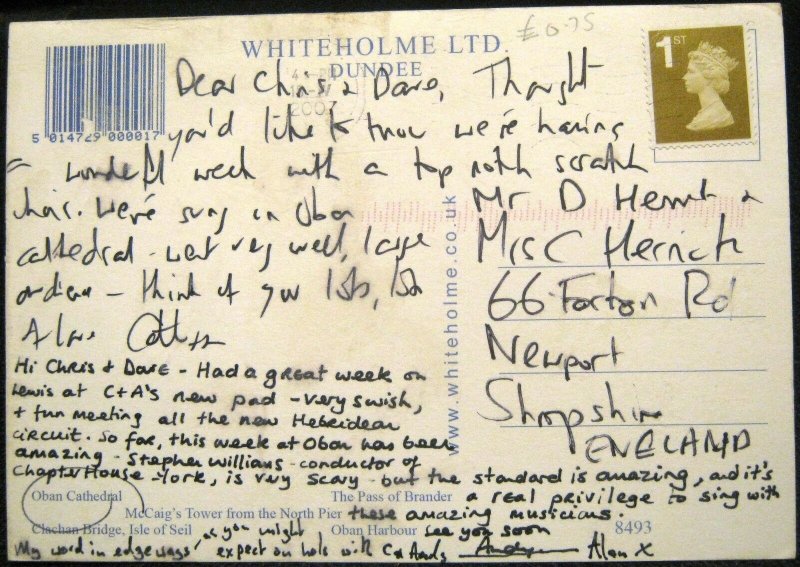 £0.75
WHITEHOLME LTD.
DUNDEE
2007
1ST
5 014729 000017
Dear Chris & Dave, Thought
you'd like to know we're having
a wonderful week with a top notch scratch
choir. We've sung in Oban
cathedral - went very well, large
audience - think of you lots, love
Alan
Mr D Herrick &
Mrs C Herrick
66 Forton Rd
Newport
Shropshire
ENGLAND
www.whiteholme.co.uk
Hi Chris & Dave - Had a great week on
Lewis at C+A's new pad - very swish,
+ fun meeting all the new Hebridean
circuit. So far, this week at Oban has been
amazing - Stephen Williams - conductor of
Chapter House - York, is very scary - but the standard is amazing, and it's
a real privilege to sing with
these amazing musicians.
Oban Cathedral
The Pass of Brander
McCaig's Tower from the North Pier
Clachan Bridge, Isle of Seil
Oban Harbour
8493
See you soon
My word in edgeways' as you might
expect on hols with C & Andy Alan X